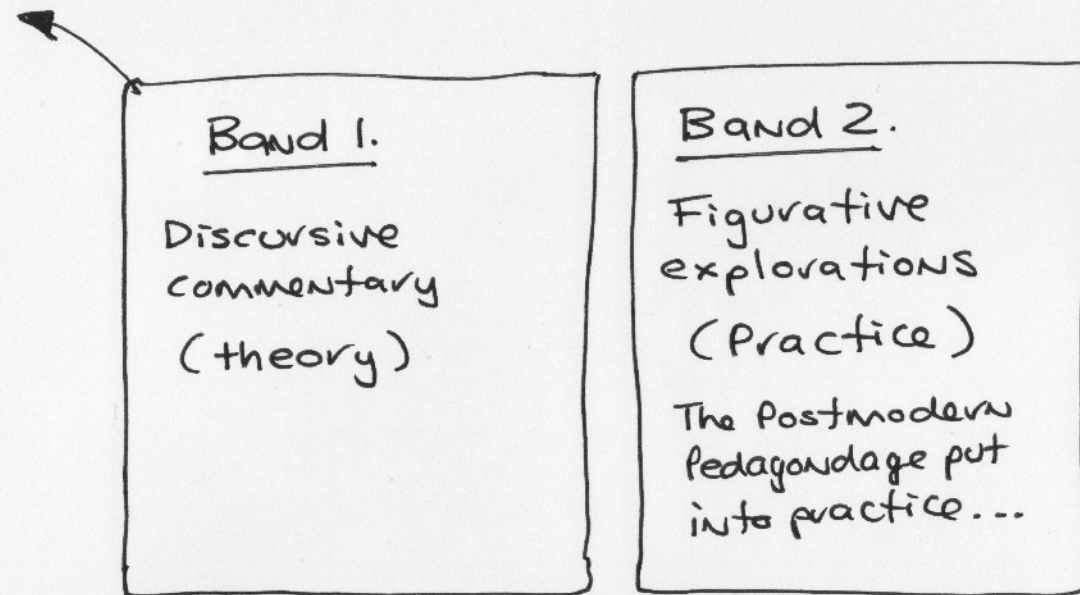 Band 1.
Discursive
commentary
(theory)
Band 2.
Figurative
explorations
(Practice)
The Postmodern
Pedagondage put
into practice...